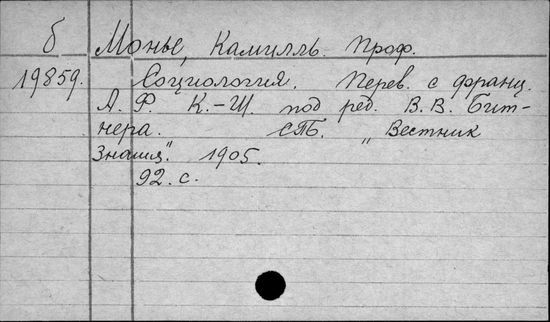 б Монье, Камилль. Проф.
19859. Социология. Перев. с франц.
А. Ф. К.-Щ. под ред. В. В. Бит-
нера. СПБ. „Вестник
Знания". 1905.
92. с.